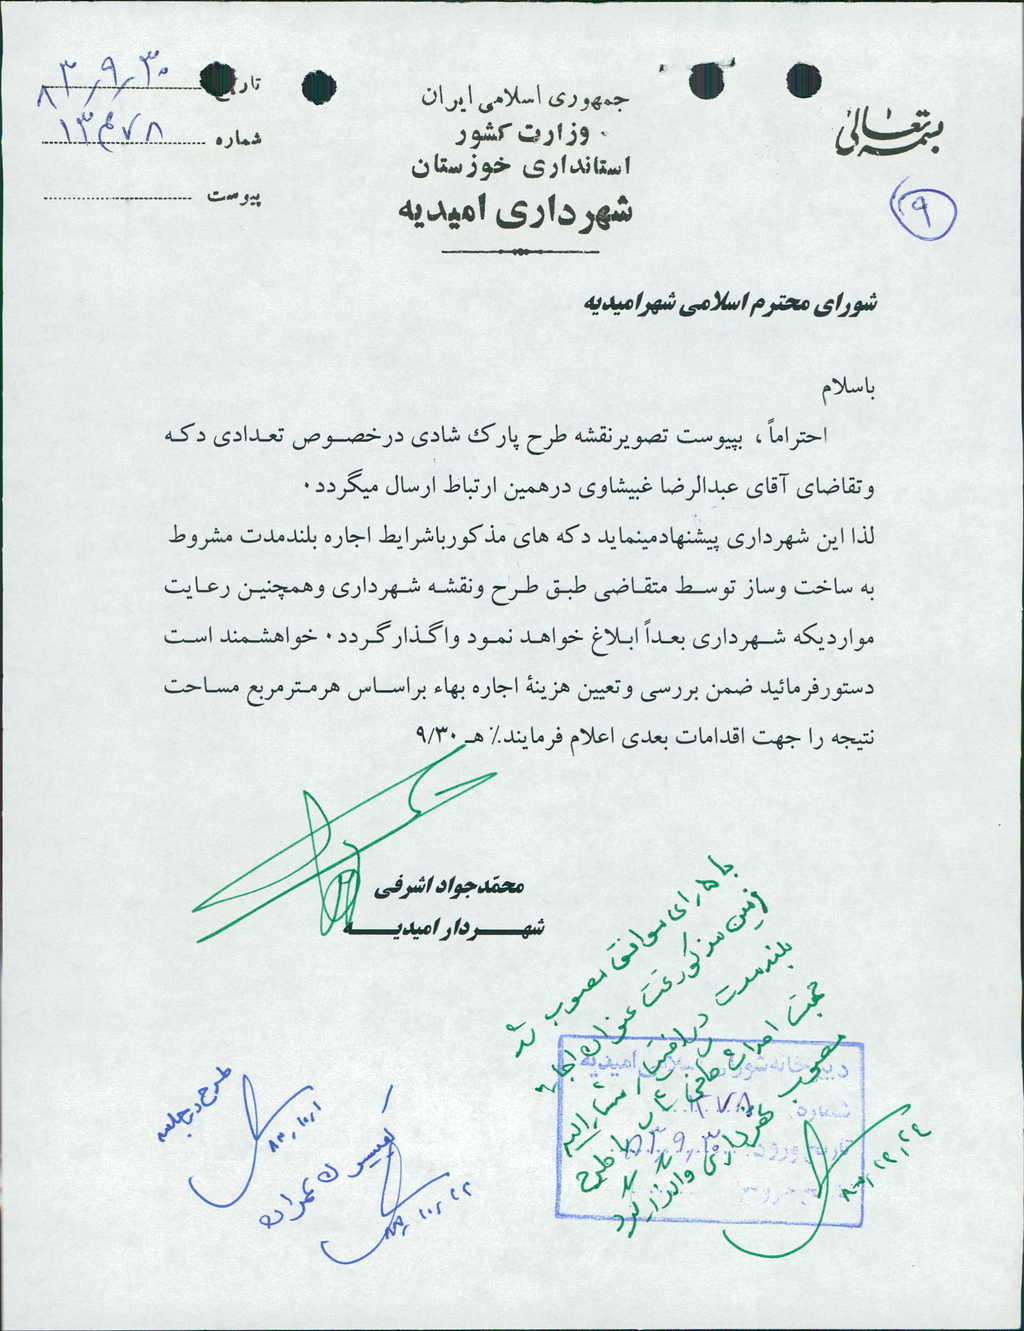 بسمه تعالی
جمهوری اسلامی ایران
وزارت کشور
استانداری خوزستان
شهرداری امیدیه
تاریخ ۸۳٫۹٫۳۰
شماره ۱۳۴۷۸
پیوست
۹
شورای محترم اسلامی شهرامیدیه
باسلام
احتراماً، بپیوست تصویرنقشه طرح پارک شادی درخصوص تعدادی دکه
وتقاضای آقای عبدالرضا غبیشاوی درهمین ارتباط ارسال میگردد۰
لذا این شهرداری پیشنهادمینماید دکه های مذکورباشرایط اجاره بلندمدت مشروط
به ساخت وساز توسط متقاضی طبق طرح ونقشه شهرداری وهمچنین رعایت
مواردیکه شهرداری بعداً ابلاغ خواهد نمود واگذارگردد۰ خواهشمند است
دستورفرمائید ضمن بررسی وتعیین هزینهٔ اجاره بهاء براساس هرمترمربع مساحت
نتیجه را جهت اقدامات بعدی اعلام فرمایند٪ هـ ۹/۳۰
محمّدجواد اشرفی
شهردار امیدیه
با ۵ رای موافق مصوب شد
زمین مذکور تحت عنوان اجاره
بلندمدت در اختیار مشارالیه
جهت احداث با طرح
مصوب شهرداری واگذار گردد
۸۳٫۱۲٫۲۴
دبیرخانه شورای اسلامی امیدیه
شماره:
تاریخ ورود: ۸۳٫۹٫۳۰
طرح در جلسه
۸۳٫۱۰٫۱
کمیسیون عمران
۸۳٫۱۰٫۱۲